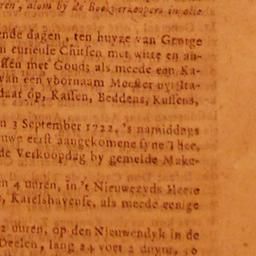 ren, alom by de Boekverkoopers in olie
ende dagen, ten huyze van George
n curieuse Chitsen met witte en an-
ssen met Goud; als meede een Ka-
van een voornaam Meester uytsta-
daar op, Kassen, Beddens, Kussens,
n 3 September 1722, 's namiddags
uwe eerst aangekomene fyne Thee,
de Verkoopdag by gemelde Make-
n 4 uuren, in 't Nieuwezyds Heere
, Karelshavense, als meede eenige
2 uuren, op den Nieuwendyk in de
Deelen, lang 24 voet 2 duym, 16